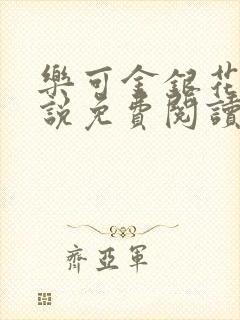 樂可金銀花
說免費閱讀
齊亞軍